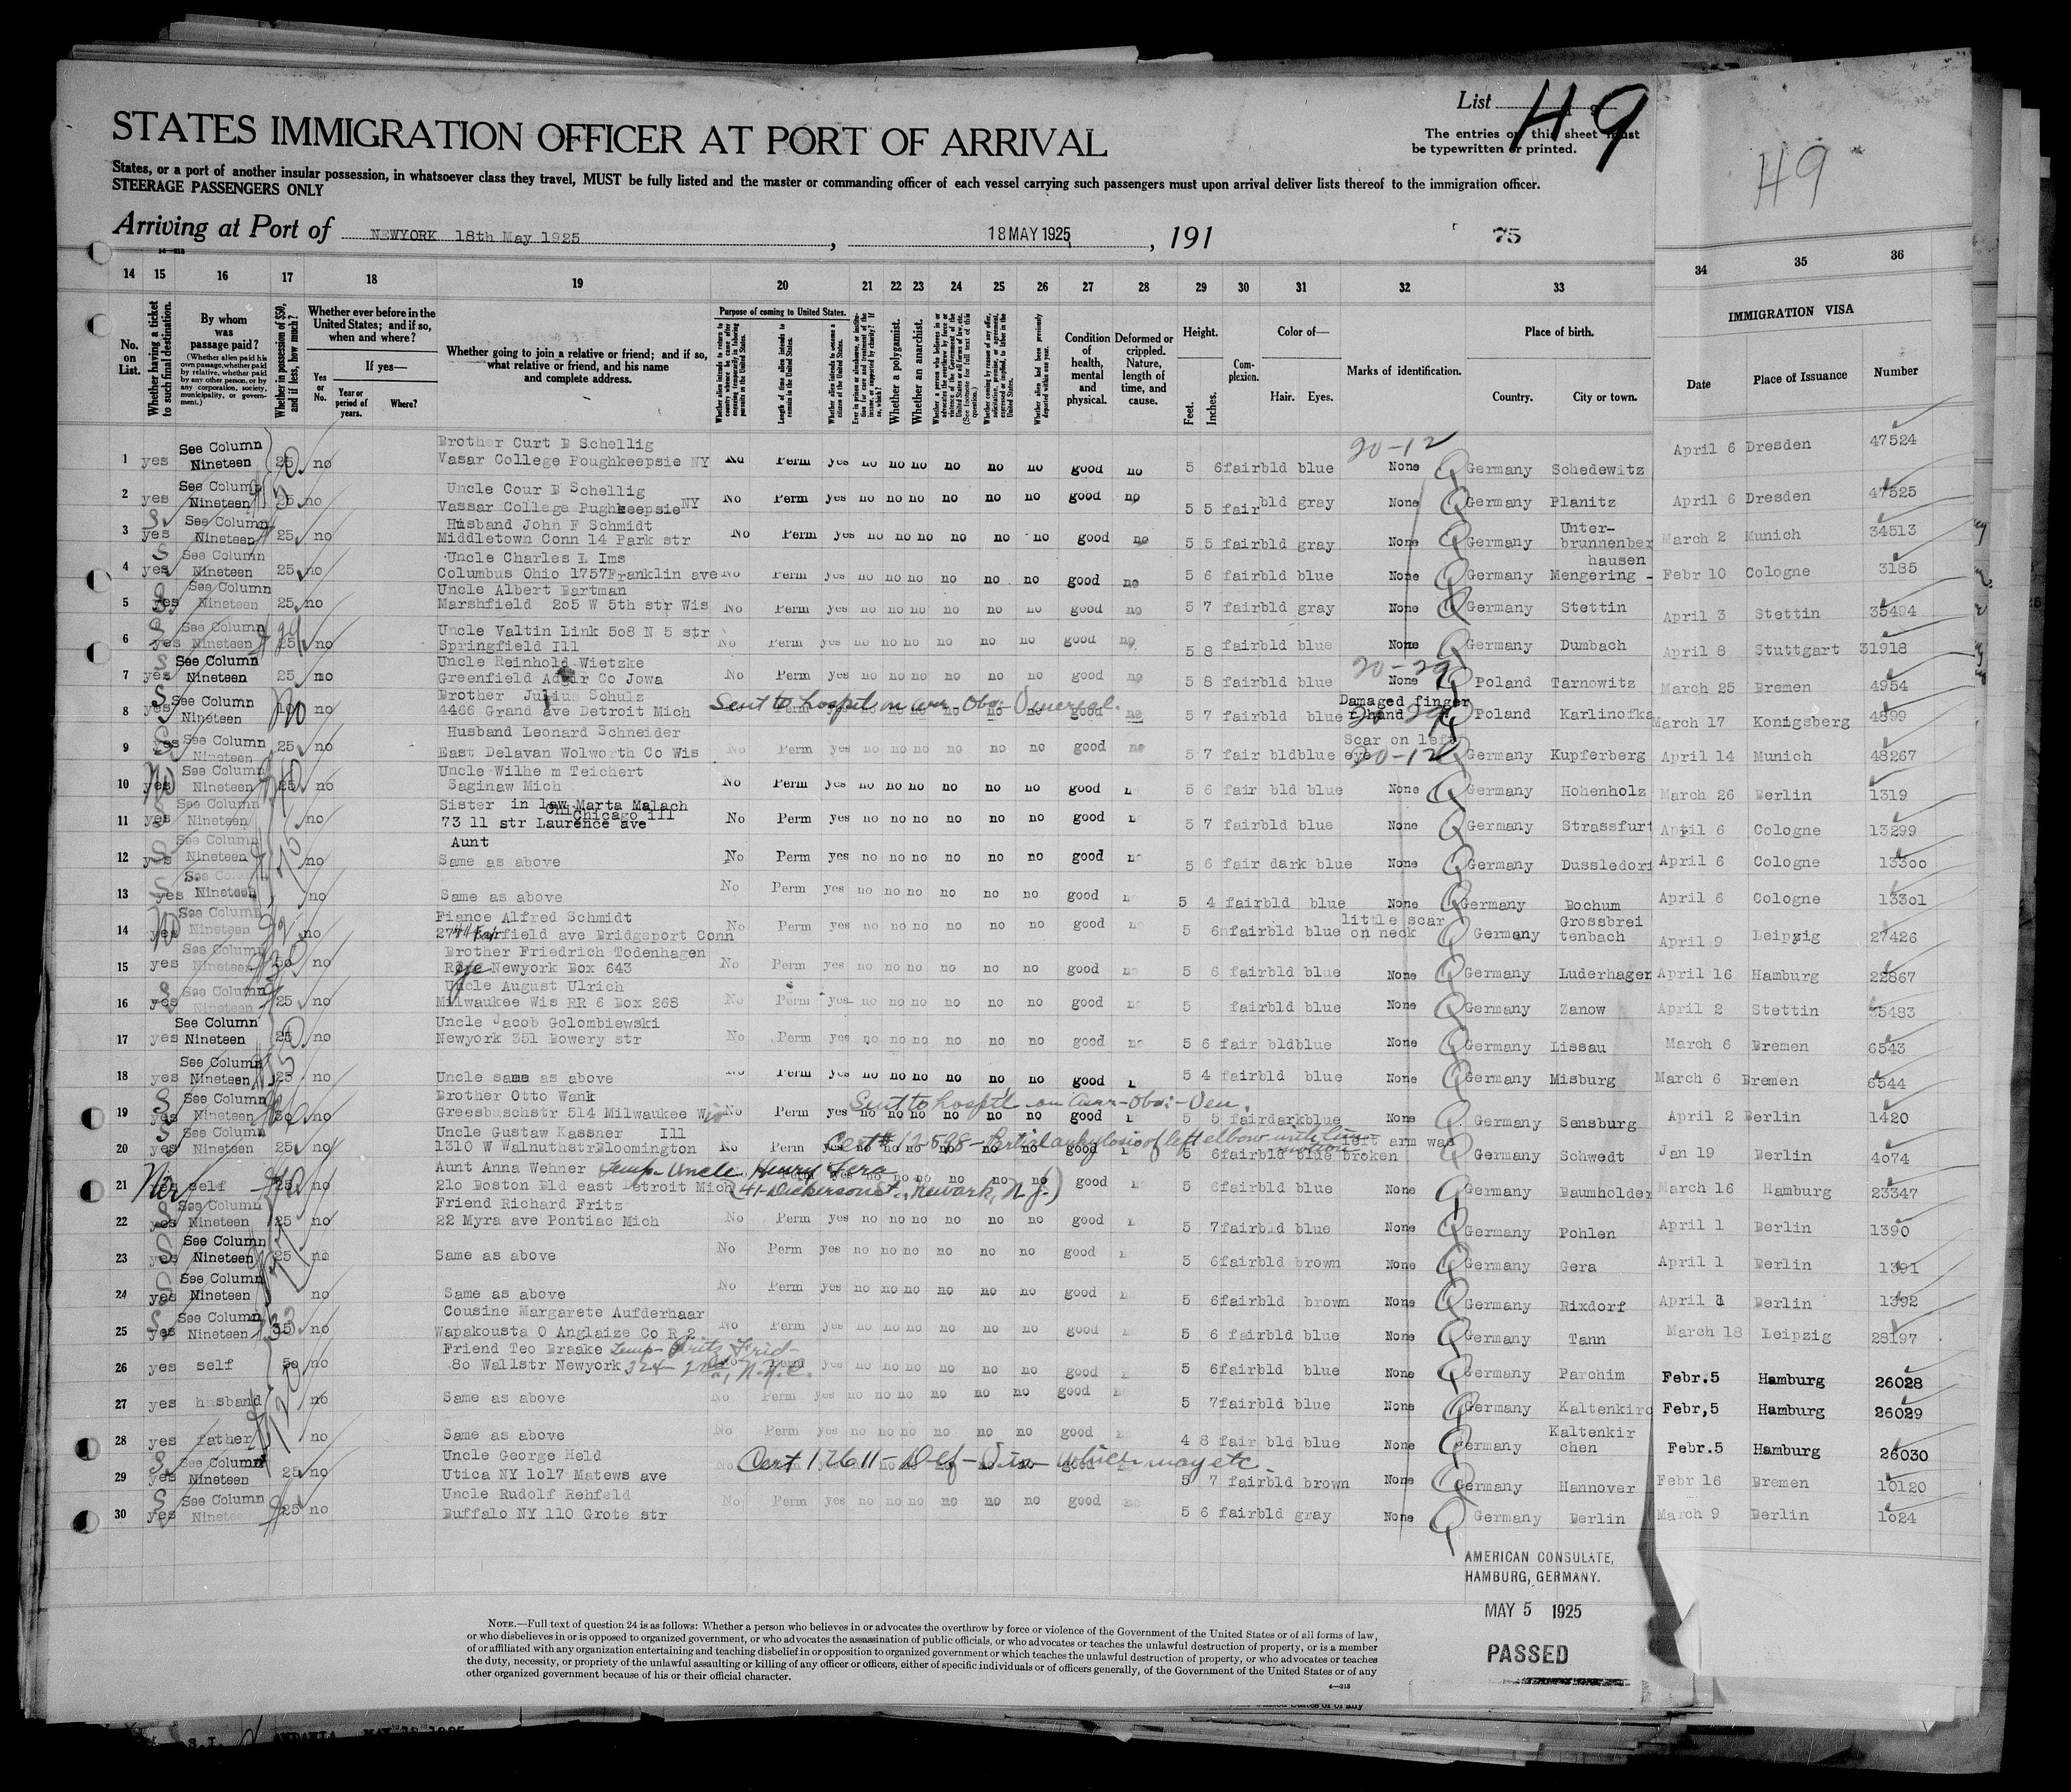 List 49
The entries on this sheet must
be typewritten or printed.
49
STATES IMMIGRATION OFFICER AT PORT OF ARRIVAL
States, or a port of another insular possession, in whatsoever class they travel, MUST be fully listed and the master or commanding officer of each vessel carrying such passengers must upon arrival deliver lists thereof to the immigration officer.
STEERAGE PASSENGERS ONLY
Arriving at Port of NEWYORK 18th May 1925, 18 MAY 1925, 191 75
14 15 16 17 18 19 20 21 22 23 24 25 26 27 28 29 30 31 32 33 34 35 36
No. on List.
Whether having a ticket to such final destination.
By whom was passage paid?
(Whether alien paid his own passage, whether paid by relative, whether paid by any other person, or by any corporation, society, municipality, or government.)
Whether in possession of $50, and if less, how much?
Whether ever before in the United States; and if so, when and where?
If yes—
Yes or No.
Year or period of years.
Where?
Whether going to join a relative or friend; and if so, what relative or friend, and his name and complete address.
Purpose of coming to United States.
Length of time alien intends to remain in the United States.
Whether alien intends to become a citizen of the United States.
Whether a polygamist.
Whether an anarchist.
Condition of health, mental and physical.
Deformed or crippled. Nature, length of time, and cause.
Height.
Feet. Inches.
Complexion.
Color of—
Hair. Eyes.
Marks of identification.
Place of birth.
Country. City or town.
IMMIGRATION VISA
Date Place of Issuance Number
1 yes See Column Nineteen 25 no Brother Curt E Schellig Vasar College Poughkeepsie NY No Perm yes no no no no no no good no 5 6 fair bld blue None Germany Schedewitz April 6 Dresden 47524
20-12
2 yes See Column Nineteen 25 no Uncle Cour E Schellig Vassar College Pughkeepsie NY No Perm yes no no no no no no good no 5 5 fair bld gray None Germany Planitz April 6 Dresden 47525
3 yes See Column Nineteen 25 no Husband John F Schmidt Middletown Conn 14 Park str No Perm yes no no no no no no good no 5 5 fair bld gray None Germany Unter-brunnenber March 2 Munich 34513
4 yes See Column Nineteen 25 no Uncle Charles L Ims Columbus Ohio 1757 Franklin ave No Perm yes no no no no no no good no 5 6 fair bld blue None Germany Mengering-hausen Febr 10 Cologne 3185
5 yes See Column Nineteen 25 no Uncle Albert Bartman Marshfield 205 W 5th str Wis No Perm yes no no no no no no good no 5 7 fair bld gray None Germany Stettin April 3 Stettin 35494
6 yes See Column Nineteen 25 no Uncle Valtin Link 508 N 5 str Springfield Ill No Perm yes no no no no no no good no 5 8 fair bld blue None Germany Dumbach April 8 Stuttgart 31918
7 yes See Column Nineteen 25 no Uncle Reinhold Wietzke Greenfield Adair Co Jowa No Perm yes no no no no no no good no 5 8 fair bld blue None Poland Tarnowitz March 25 Bremen 4954
8 yes See Column Nineteen no Brother Julius Schulz 4466 Grand ave Detroit Mich Sent to hospit on arr Obs: Venereal. 5 7 fair bld blue Damaged finger r hand Poland Karlinofka March 17 Konigsberg 4899
9 yes See Column Nineteen 25 no Husband Leonard Schneider East Delavan Wolworth Co Wis No Perm yes no no no no no no good no 5 7 fair bld blue Scar on left eye 20-12 Germany Kupferberg April 14 Munich 48267
10 yes See Column Nineteen 25 no Uncle Wilhe m Teichert Saginaw Mich No Perm yes no no no no no no good 5 6 fair bld blue None Germany Hohenholz March 26 Berlin 1319
11 yes See Column Nineteen no Sister in law Marta Malach Chicago ill 73 11 str Laurence ave No Perm yes no no no no no no good 5 7 fair bld blue None Germany Strassfurt April 6 Cologne 13299
12 yes See Column Nineteen no Aunt Same as above No Perm yes no no no no no no good 5 6 fair dark blue None Germany Dussledorf April 6 Cologne 13300
13 yes See Column Nineteen no Same as above No Perm yes no no no no no no good 5 4 fair bld blue None Germany Bochum April 6 Cologne 13301
14 yes See Column Nineteen no Fiance Alfred Schmidt Fairfield ave Bridgeport Conn No Perm yes no no no no no no good no 5 6 fair bld blue little scar on neck Germany Grossbrei tenbach April 9 Leipzig 27426
15 yes See Column Nineteen no Brother Friedrich Todenhagen Rye Newyork Box 643 No Perm yes no no no no no no good no 5 6 fair bld blue None Germany Luderhagen April 16 Hamburg 22867
16 yes See Column Nineteen 25 no Uncle August Ulrich Milwaukee Wis RR 6 Box 268 No Perm yes no no no no no no good no 5 fair bld blue None Germany Zanow April 2 Stettin 35483
17 yes See Column Nineteen 25 no Uncle Jacob Golombiewski Newyork 351 Bowery str No Perm yes no no no no no no good no 5 6 fair bld blue None Germany Lissau March 6 Bremen 6543
18 yes See Column Nineteen 25 no Uncle same as above Perm yes no no no no no no good 5 4 fair bld blue None Germany Misburg March 6 Bremen 6544
19 yes See Column Nineteen 30 no Brother Otto Wank Greesbuschstr 514 Milwaukee Wis No Perm yes no no no no no no good Sent to hospit on arr-Obs:-Ven. 5 5 fair dark blue Germany Sensburg April 2 Berlin 1420
20 yes See Column Nineteen 25 no Uncle Gustaw Kassner Ill 1310 W Walnuthstr Bloomington No Perm yes no no no no no no good Cert # 12598-Partial ankylosis of left elbow with lim motion 5 6 fair bld blue left arm was broken Germany Schwedt Jan 19 Berlin 4074
21 yes self 25 no Aunt Anna Wehner 210 Boston Bld east Detroit Mich Temp-Uncle Henry Fera (41-Dickerson St., Newark, N.J.) good no 5 6 fair bld blue None Germany Baumholder March 16 Hamburg 23347
22 yes See Column Nineteen 25 no Friend Richard Fritz 22 Myra ave Pontiac Mich No Perm yes no no no no no no good 5 7 fair bld blue None Germany Pohlen April 1 Berlin 1390
23 yes See Column Nineteen 25 no Same as above No Perm yes no no no no no no good 5 6 fair bld brown None Germany Gera April 1 Berlin 1391
24 yes See Column Nineteen no Same as above No Perm yes no no no no no no good 5 6 fair bld brown None Germany Rixdorf April 1 Berlin 1392
25 yes See Column Nineteen no Cousine Margarete Aufderhaar Wapakousta O Anglaize Co R 2 No Perm yes no no no no no no good no 5 6 fair bld blue None Germany Tann March 18 Leipzig 28197
26 yes self 50 no Friend Teo Braake 80 Wallstr Newyork Temp-Fritz Frid- 324- 2nd N.Y.C. Perm yes no no no no no no good no 5 6 fair bld blue None Germany Parchim Febr.5 Hamburg 26028
27 yes husband no Same as above No Perm yes no no no no no no good no 5 7 fair bld blue None Germany Kaltenkirc Febr,5 Hamburg 26029
28 yes father no Same as above No Perm yes no no no no no no good no 4 8 fair bld blue None Germany Kaltenkir chen Febr.5 Hamburg 26030
29 yes See Column Nineteen 25 no Uncle George Held Utica NY 1017 Matews ave Cert 12611- Def- which may etc. 5 7 fair bld brown None Germany Hannover Febr 16 Bremen 10120
30 yes See Column Nineteen 25 no Uncle Rudolf Rehfeld Buffalo NY 110 Grote str No Perm yes no no no no no no good no 5 6 fair bld gray None Germany Berlin March 9 Berlin 1024
AMERICAN CONSULATE,
HAMBURG, GERMANY.
MAY 5 1925
PASSED
NOTE.—Full text of question 24 is as follows: Whether a person who believes in or advocates the overthrow by force or violence of the Government of the United States or of all forms of law,
or who disbelieves in or is opposed to organized government, or who advocates the assassination of public officials, or who advocates or teaches the unlawful destruction of property, or is a member
of or affiliated with any organization entertaining and teaching disbelief in or opposition to organized government or which teaches the unlawful destruction of property, or who advocates or teaches
the duty, necessity, or propriety of the unlawful assaulting or killing of any officer or officers, either of specific individuals or of officers generally, of the Government of the United States or of any
other organized government because of his or their official character.
4—213